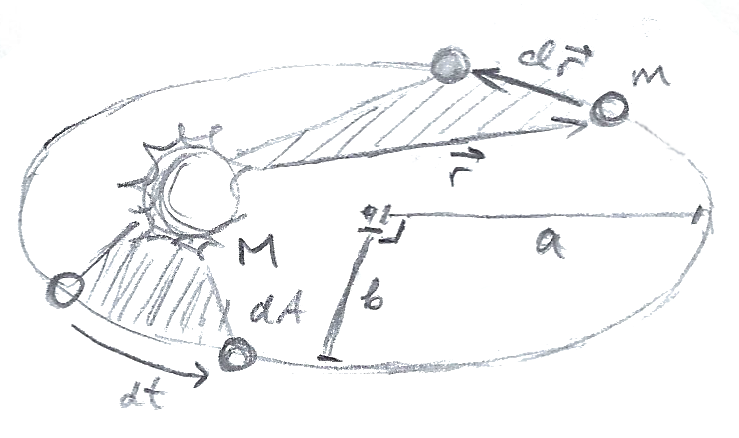 dr
m
r
M
a
b
dA
dt